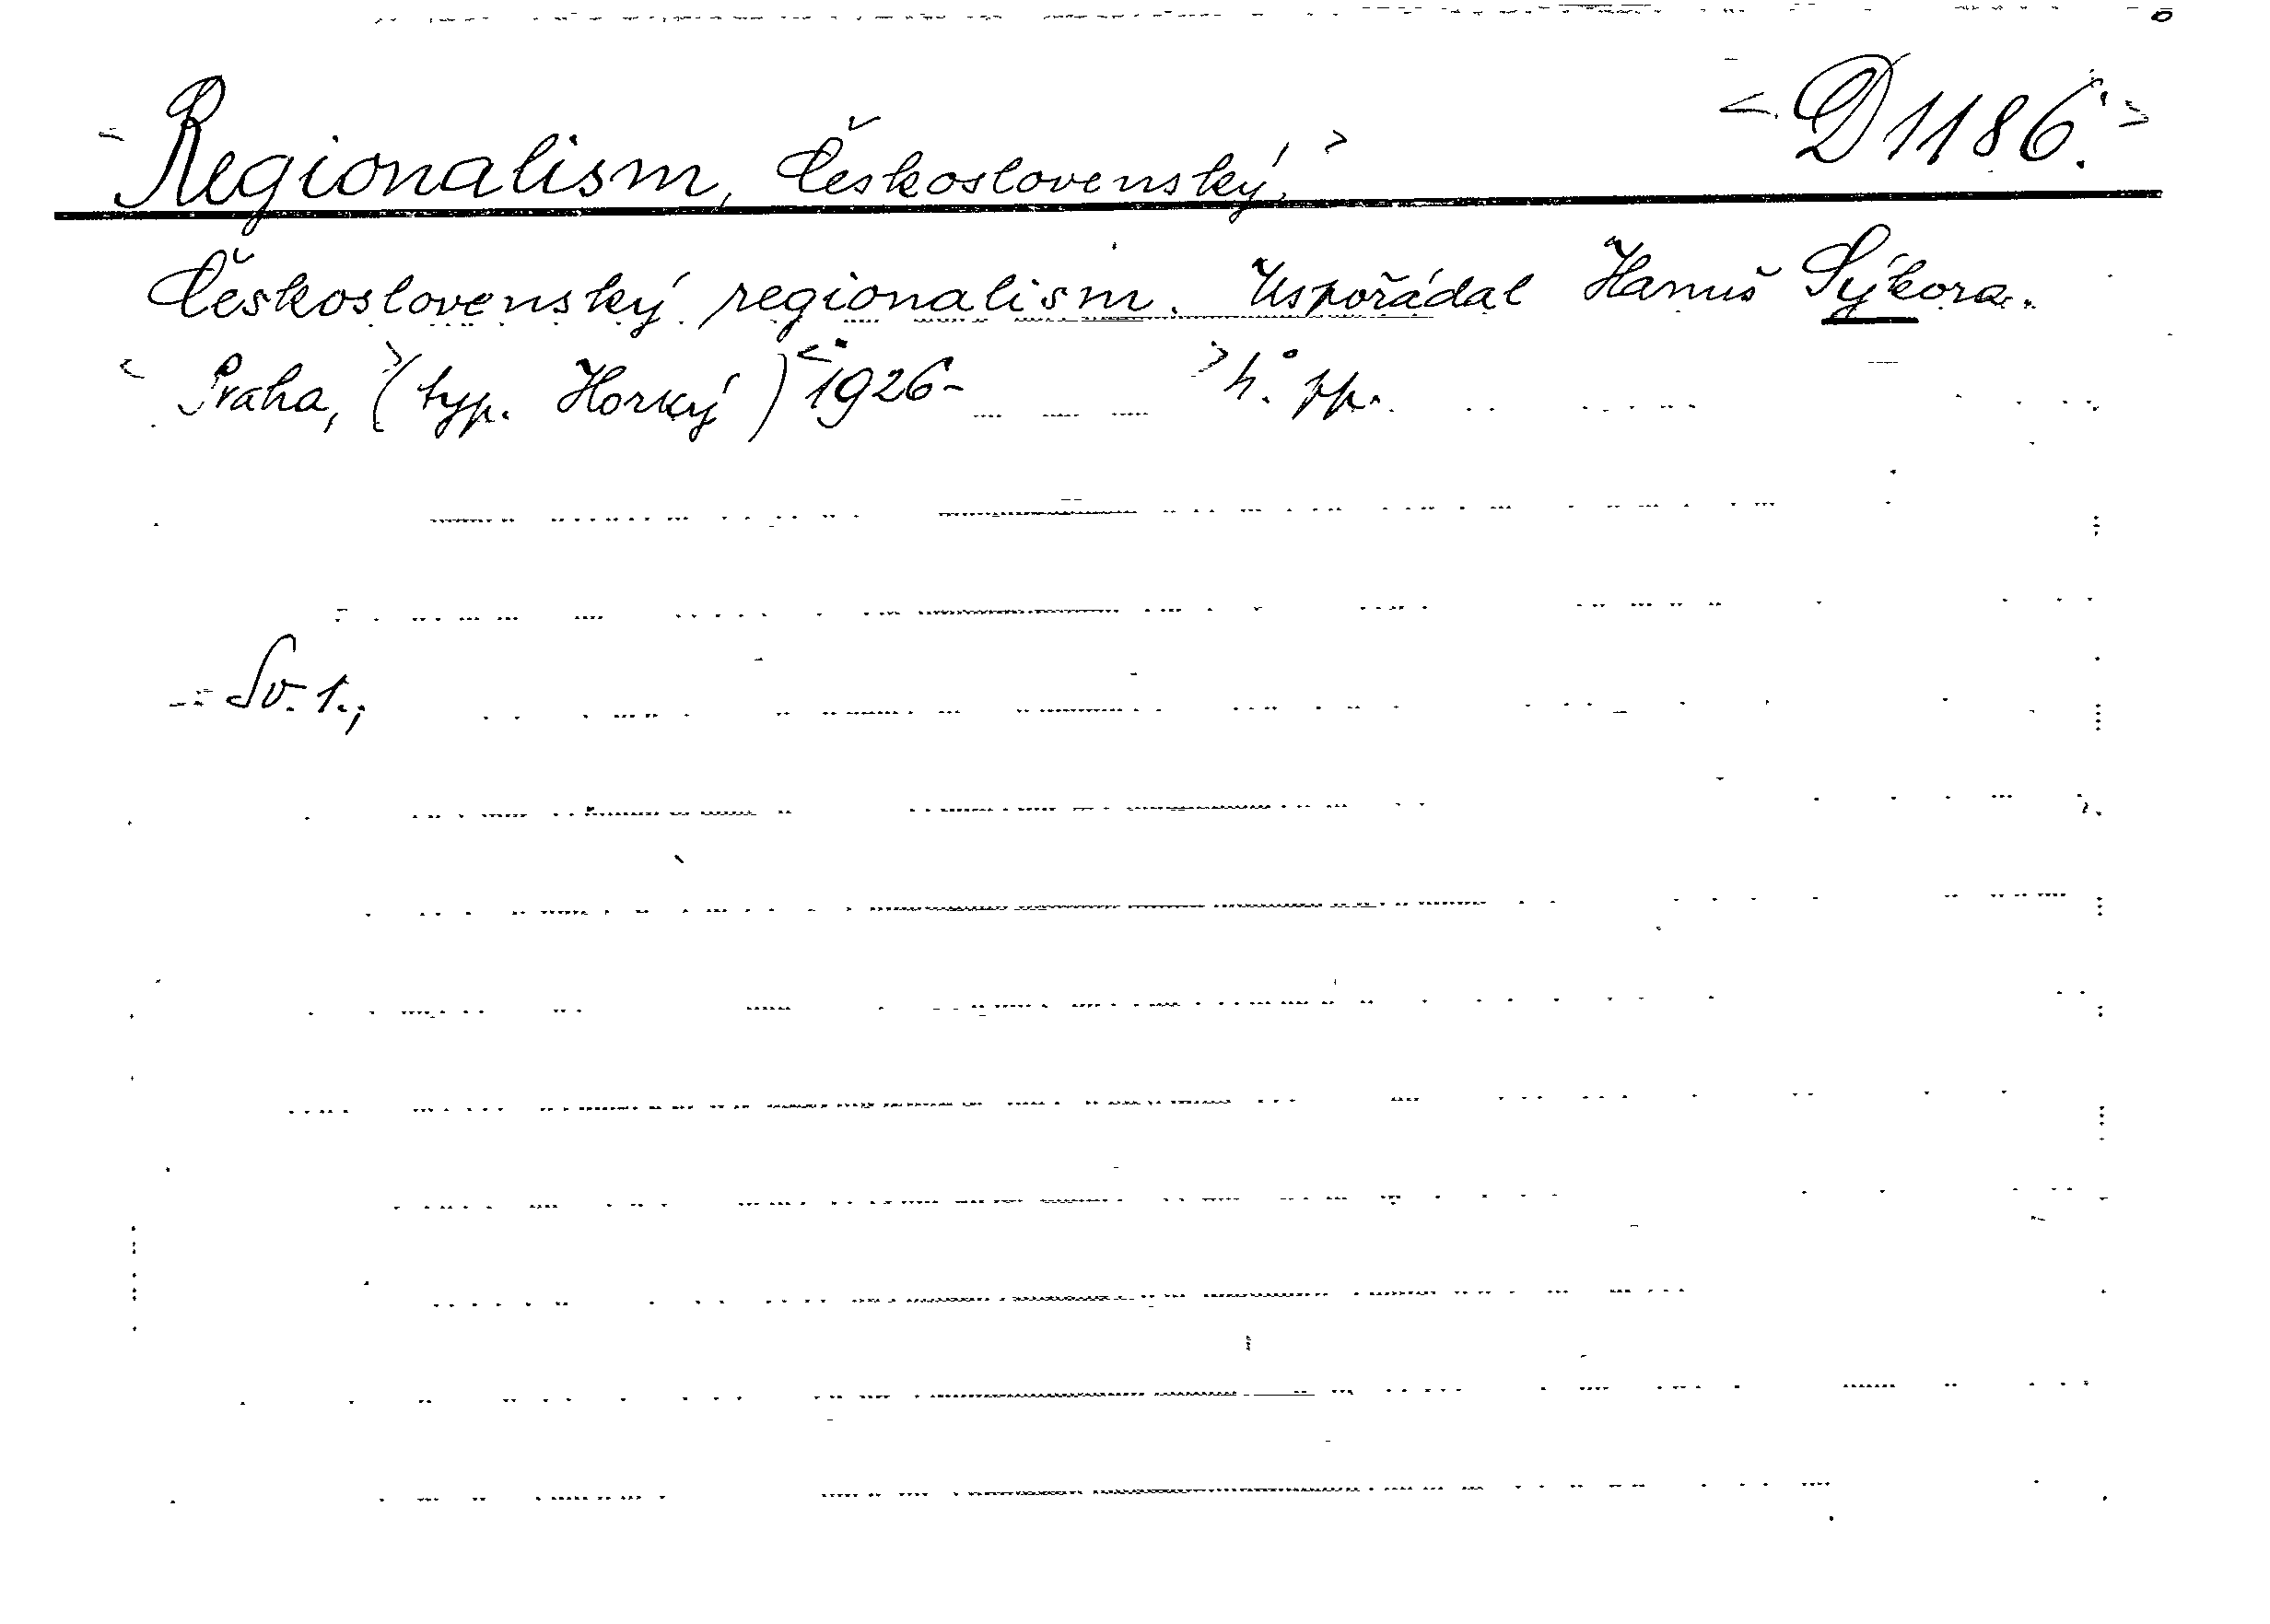 <Regionalism, Československý.> <D 1186.>
Československý regionalism. Uspořádal Hanuš Sýkora.
<Praha,> (typ. Horký) <1926- > 4° pp.
Sv. 1.,